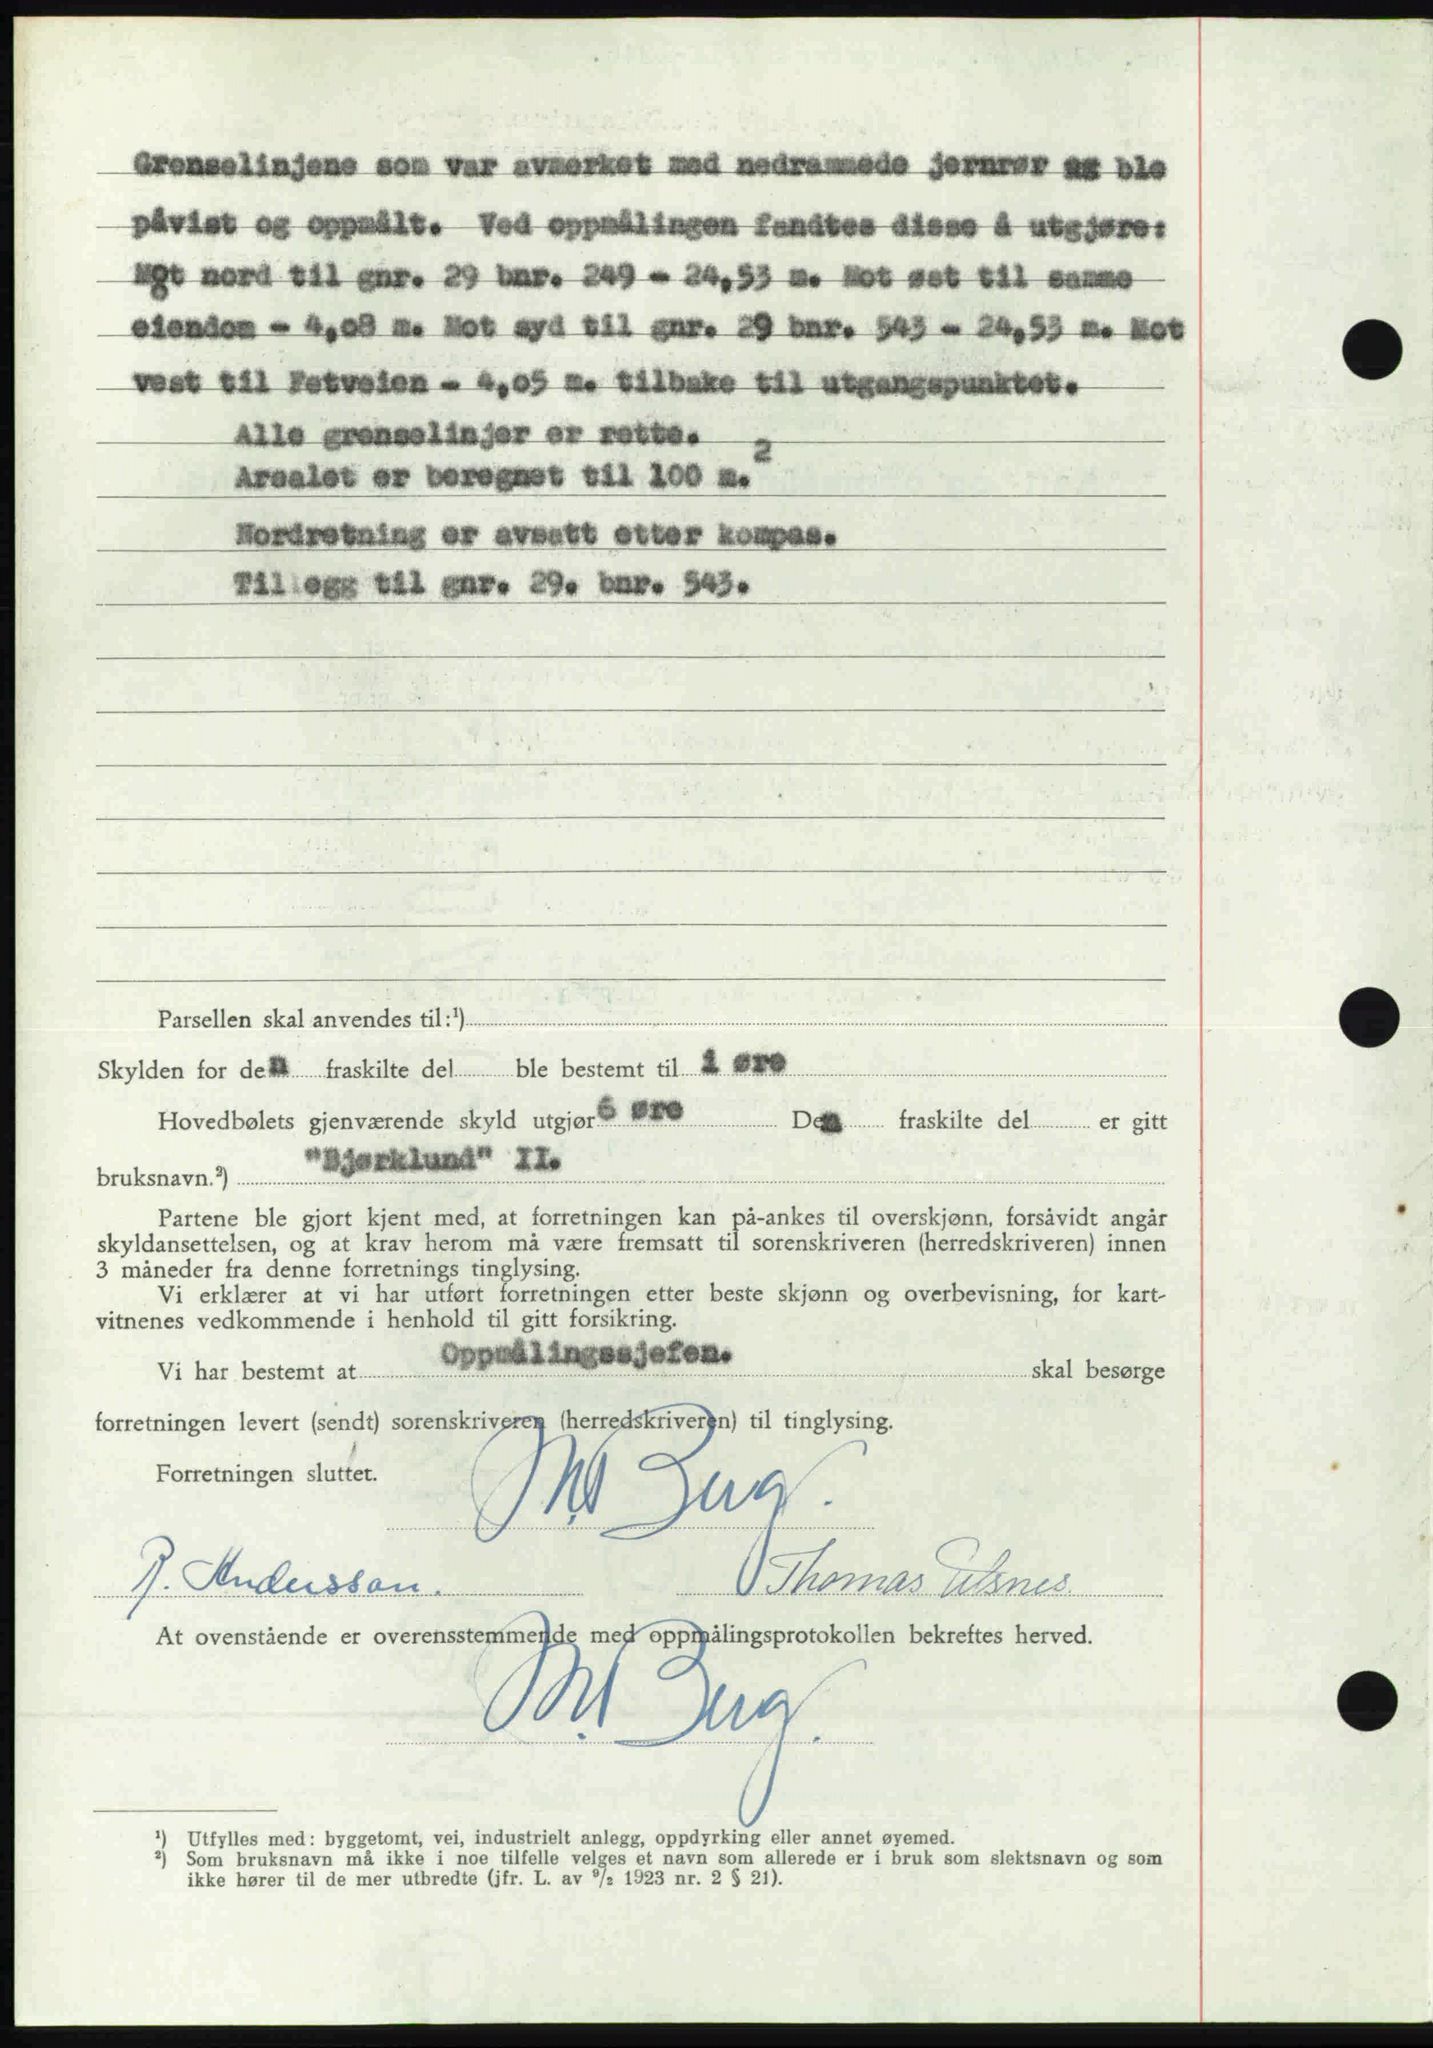 Grenselinjene som var avmerket med nedrammede jernrør og ble
påvist og oppmålt. Ved oppmålingen fandtes disse å utgjøre:
Mot nord til gnr. 29 bnr. 249 - 24,53 m. Mot øst til samme
eiendom - 4,08 m. Mot syd til gnr. 29 bnr. 543 - 24,53 m. Mot
vest til Fetveien - 4,05 m. tilbake til utgangspunktet.
Alle grenselinjer er rette.
Arealet er beregnet til 100 m.²
Nordretning er avsatt etter kompas.
Tillegg til gnr. 29. bnr. 543.
Parsellen skal anvendes til:¹)
Skylden for den fraskilte del ble bestemt til 1 øre
Hovedbølets gjenværende skyld utgjør 6 øre Den fraskilte del er gitt
bruksnavn.²) "Bjørklund" II.
Partene ble gjort kjent med, at forretningen kan på-ankes til overskjønn, forsåvidt angår
skyldansettelsen, og at krav herom må være fremsatt til sorenskriveren (herredskriveren) innen
3 måneder fra denne forretnings tinglysing.
Vi erklærer at vi har utført forretningen etter beste skjønn og overbevisning, for kart-
vitnenes vedkommende i henhold til gitt forsikring.
Vi har bestemt at Oppmålingssjefen. skal besørge
forretningen levert (sendt) sorenskriveren (herredskriveren) til tinglysing.
Forretningen sluttet.
Berg.
R. Andersson. Thomas
At ovenstående er overensstemmende med oppmålingsprotokollen bekreftes herved.
Berg.
¹) Utfylles med: byggetomt, vei, industrielt anlegg, oppdyrking eller annet øyemed.
²) Som bruksnavn må ikke i noe tilfelle velges et navn som allerede er i bruk som slektsnavn og som
ikke hører til de mer utbredte (jfr. L. av ⁹/₂ 1923 nr. 2 § 21).